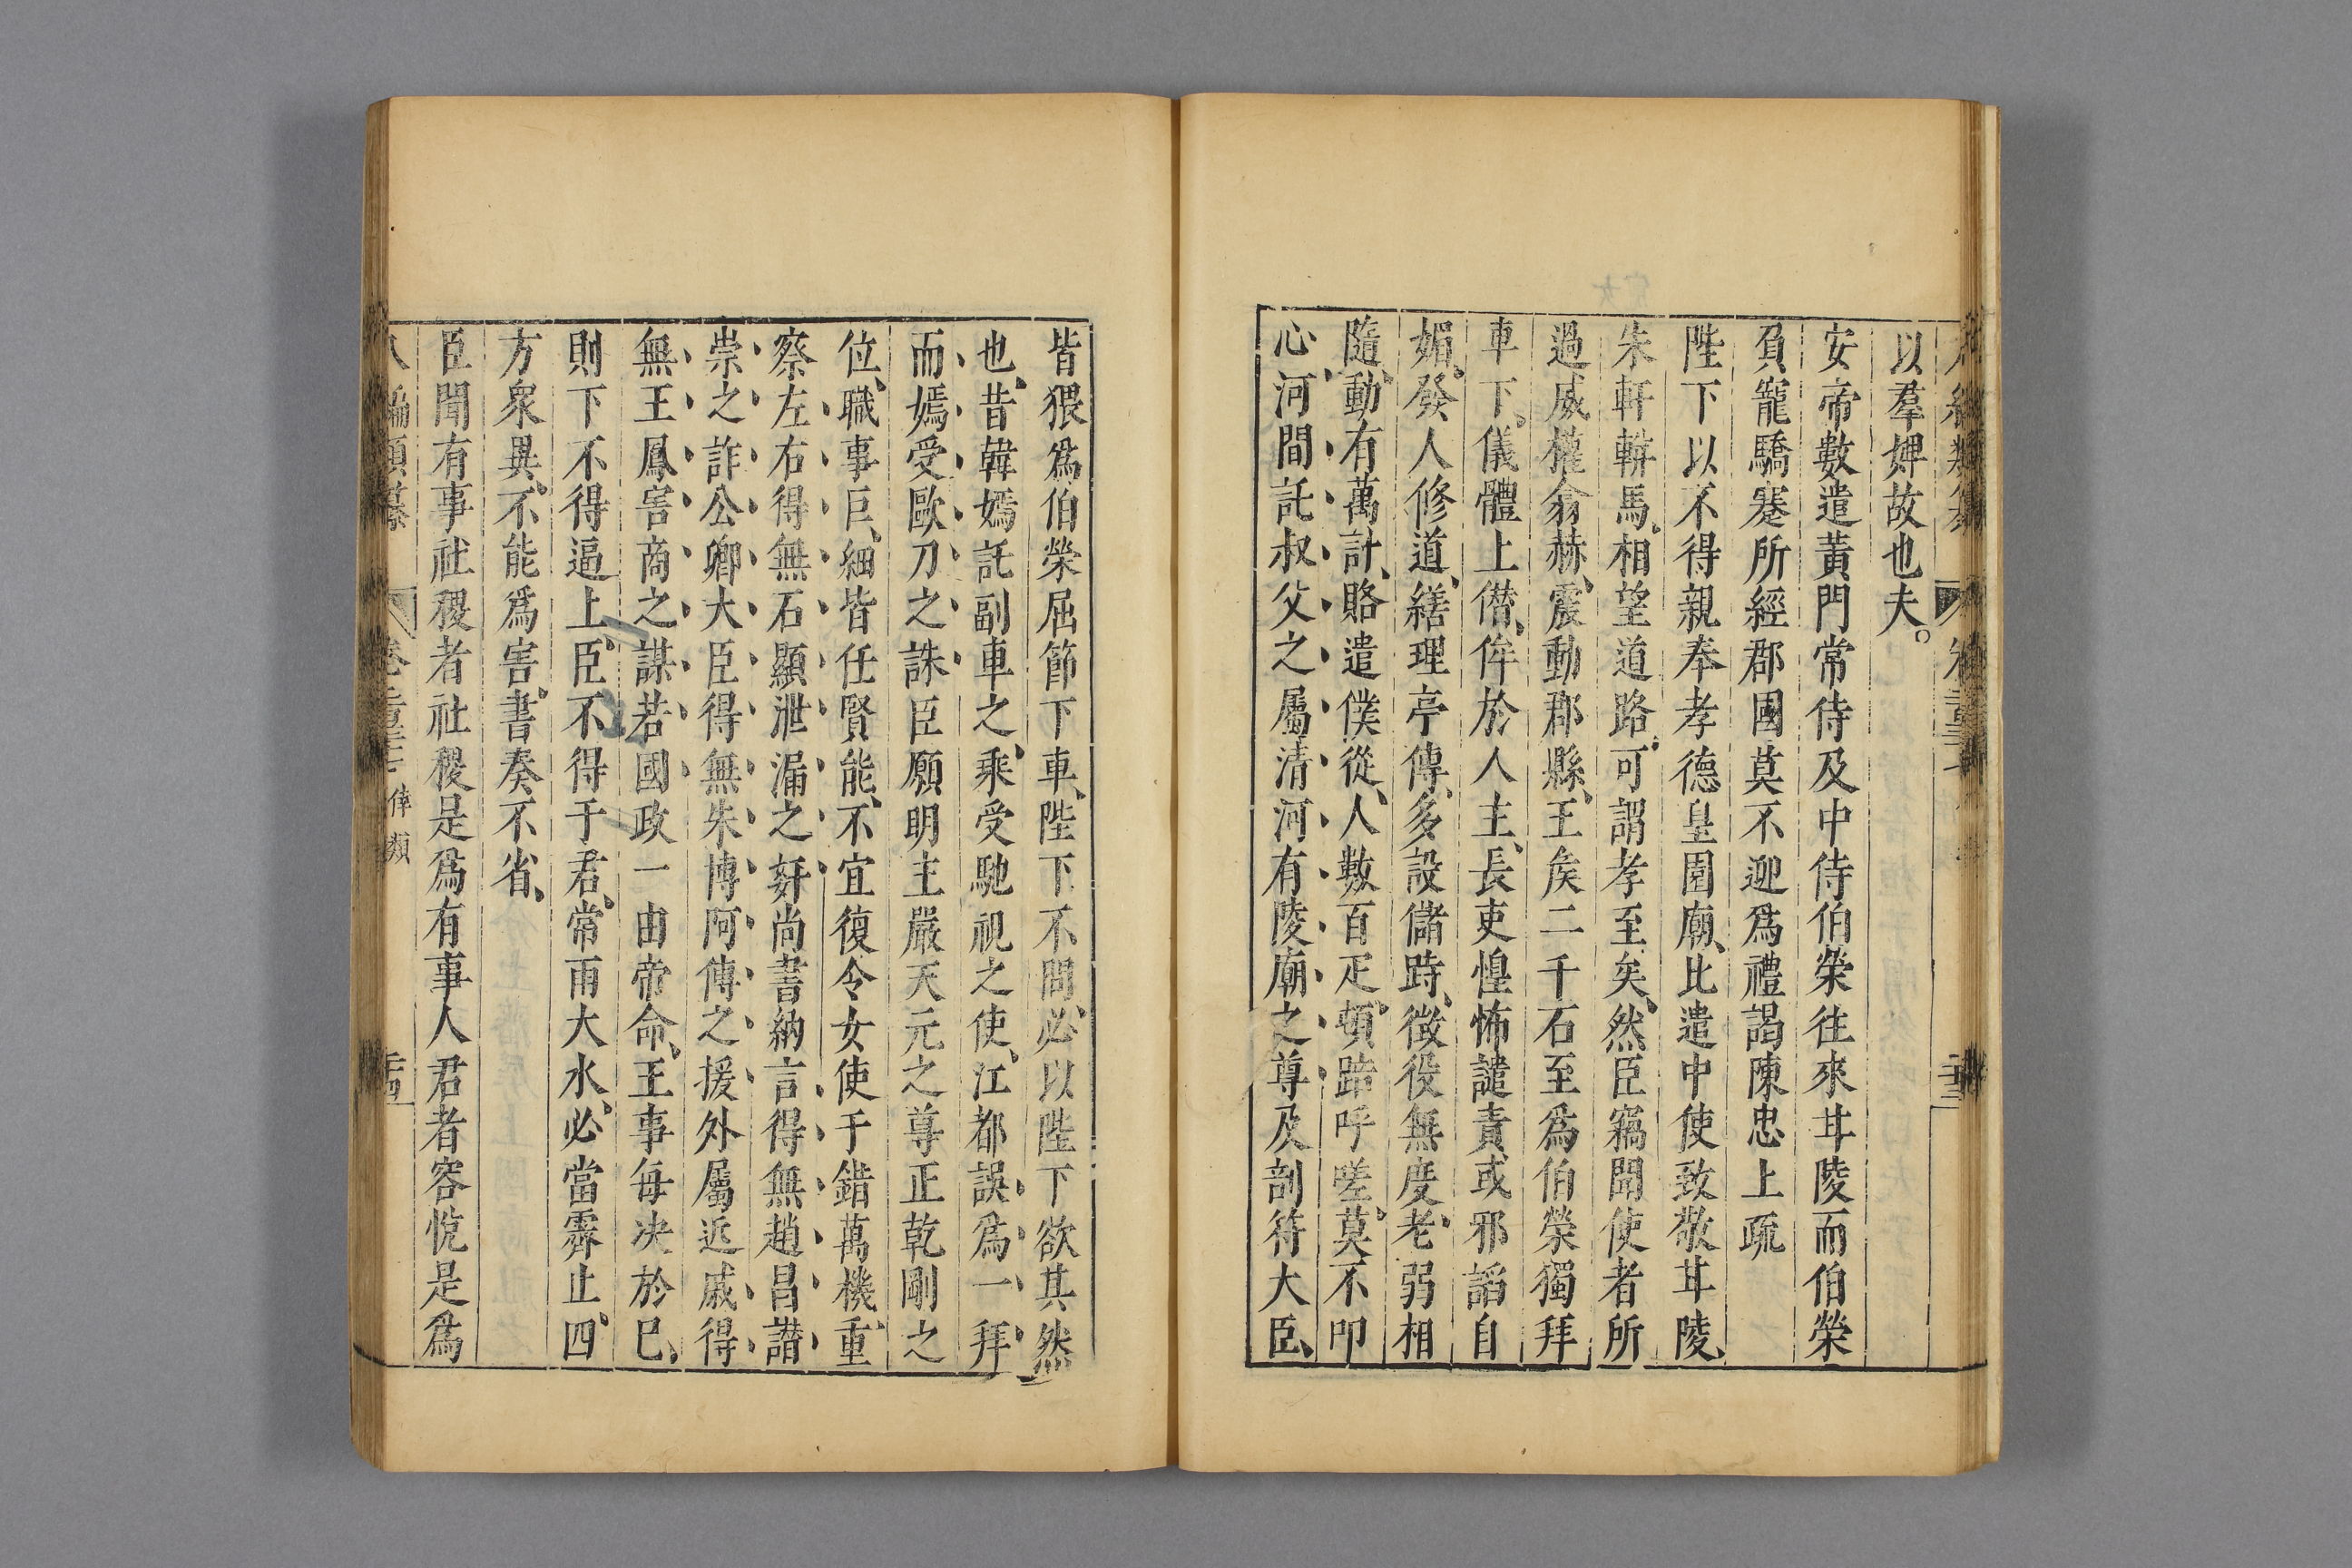 以羣婢故也夫。
安帝數遣黃門常侍及中侍伯榮往來甘陵而伯榮
負寵驕蹇所經郡國莫不迎爲禮謁陳忠上疏
陛下以不得親奉孝德皇園廟、比遣中使致敬甘陵、
朱軒軿馬、相望道路、可謂孝至矣、然臣竊聞使者所
過威權翕赫、震動郡縣、王矦二千石至爲伯榮獨拜
車下、儀體上僣、侔於人主、長吏惶怖譴責、或邪謟自
媚、發人修道、繕理亭傳、多設儲跱、徵役無度、老弱相
隨、動有萬計、賂遣僕從、人數百疋、頓踣呼嗟、莫不叩
心、河間託叔父之屬清河有陵廟之尊及剖符大臣、
皆猥爲伯榮屈節下車、陛下不問、必以陛下欲其然
也、昔韓嫣託副車之乘、受馳視之使、江都誤爲一拜
而嫣受歐刀之誅臣願明主嚴天元之尊正乾剛之
位、職事巨細、皆任賢能、不宜復令女使干錯萬機、重
察左右得無石顯泄漏之姧尚書納言得無趙昌譛
崇之詐公卿大臣得無朱博阿傅之援外屬近戚得
無王鳳害商之謀若國政一由帝命、王事每决於巳、
則下不得逼上、臣不得干君、常雨大水、必當霽止、四
方衆異、不能爲害、書奏不省、
臣聞有事社稷者社稷是爲有事人君者容悅是爲
八編類纂 卷 倖類